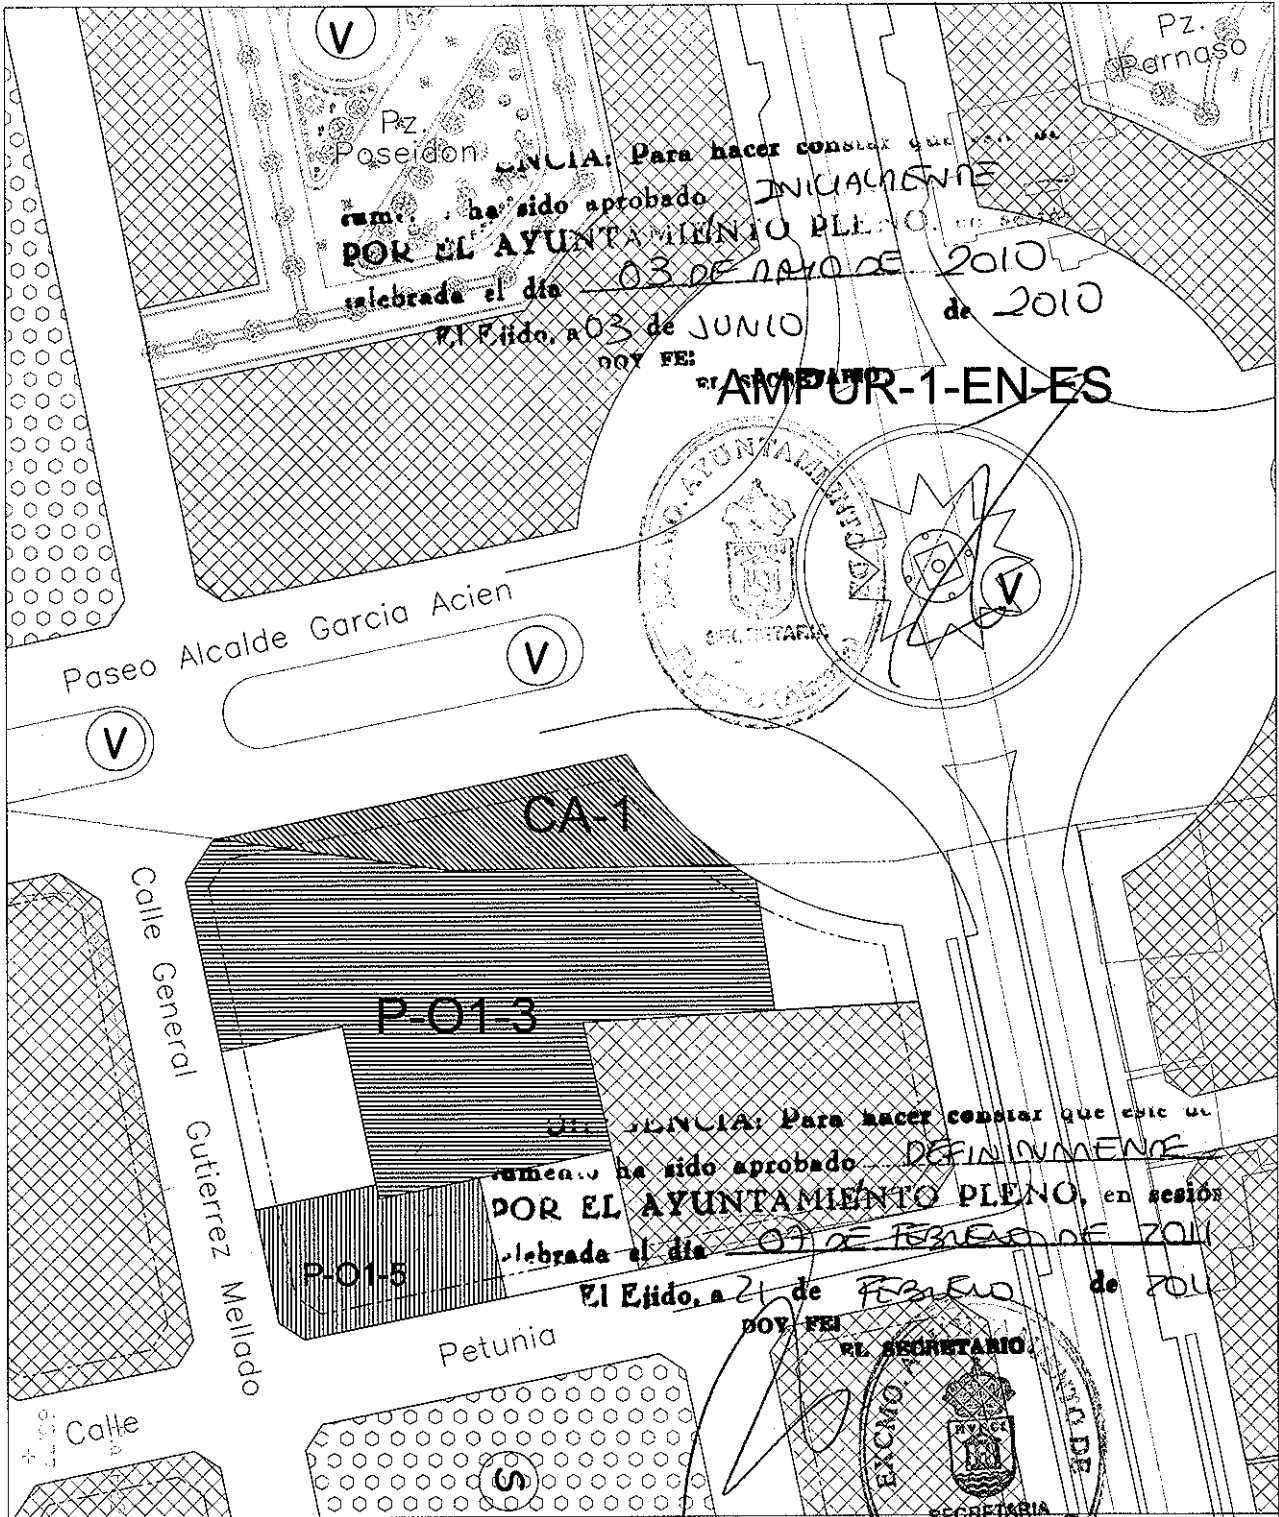 V
Pz.
Parnaso
Pz.
Poseidon
ENCIA: Para hacer constar que
ha sido aprobado INICIALMENTE
POR EL AYUNTAMIENTO PLENO, en
celebrada el día 03 DE MAYO DE 2010
El Ejido, a 03 de JUNIO de 2010
DOY FE:
EL SECRETARIO
AMPUR-1-EN-ES
AYUNTAMIENTO DE
SECRETARIA
V
Paseo Alcalde Garcia Acien
V
V
CA-1
Calle General Gutierrez Mellado
P-O1-3
ENCIA: Para hacer constar que este
cumento ha sido aprobado DEFINITIVAMENTE
POR EL AYUNTAMIENTO PLENO, en sesión
celebrada el día 07 DE FEBRERO DE 2011
P-O1-5
El Ejido, a 21 de FEBRERO de 2011
DOY FE:
EL SECRETARIO.
Petunia
Calle
S
EXCMO. AYUNTAMIENTO DE
SECRETARIA